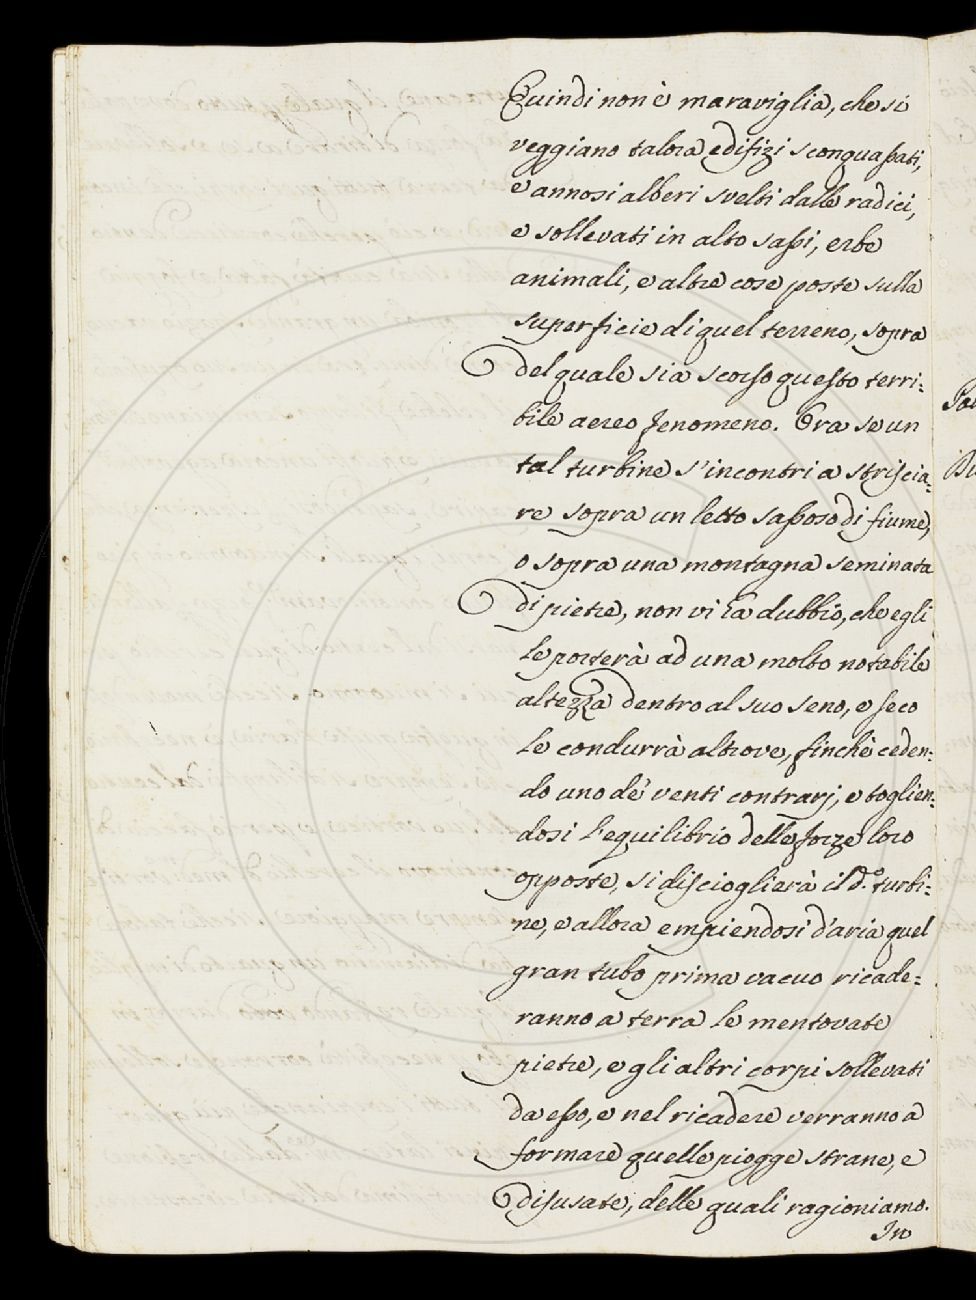 Quindi non è maraviglia, che si
veggiano talora edifizi sconquassati,
e annosi alberi svelti dalle radici,
e sollevati in alto sassi, erbe
animali, e altre cose poste sulla
superficie di quel terreno, sopra
del quale sia scorso questo terri=
bile aereo fenomeno. Ora se un
tal turbine s'incontri a striscia=
re sopra un letto sassoso di fiume,
o sopra una montagna seminata
di pietre, non vi ha dubbio, che egli
le porterà ad una molto notabile
altezza dentro al suo seno, e seco
le condurrà altrove, finchè ceden=
do uno de' venti contrarj, e toglien=
dosi l'equilibrio delle forze loro
opposte, si discioglierà il d.º turbi=
ne, e allora empiendosi d'aria quel
gran tubo prima vacuo ricade=
ranno a terra le mentovate
pietre, e gli altri corpi sollevati
da esso, e nel ricadere verranno a
formare quelle piogge strane, e
disusate, delle quali ragioniamo.
In